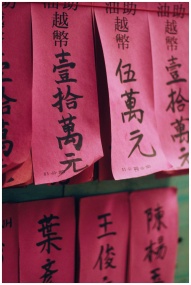 助油
越幣
壹拾萬元
助油
越幣
伍萬元
油
越幣
壹拾
葉彥
王俊
陳楊